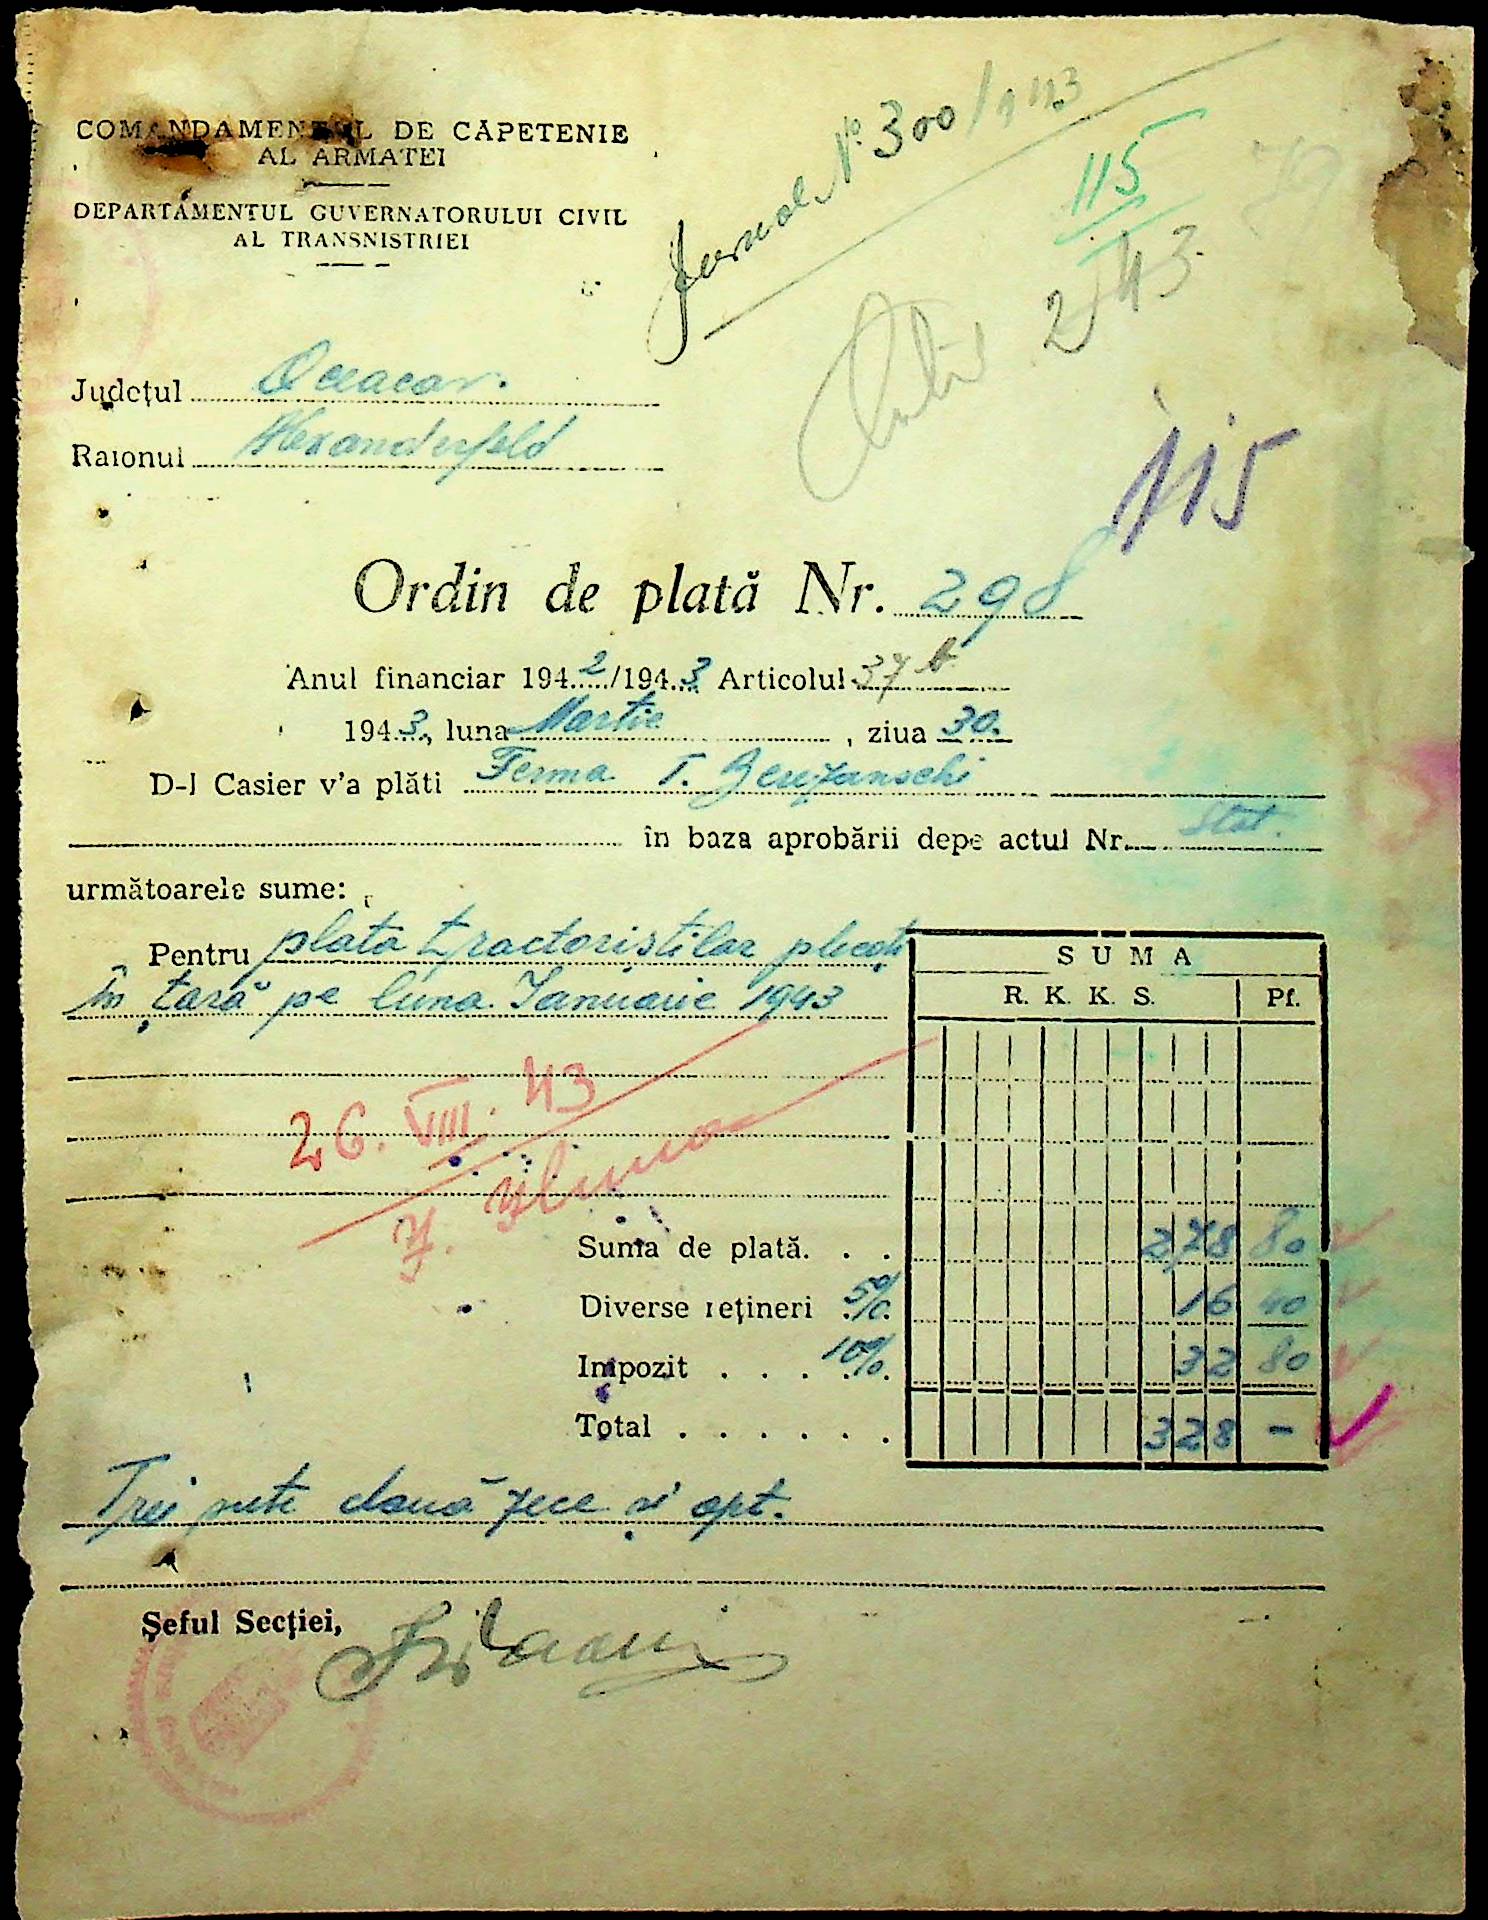 COMANDAMENTUL DE CĂPETENIE
AL ARMATEI
DEPARTAMENTUL GUVERNATORULUI CIVIL
AL TRANSNISTRIEI
Jurnal No 300/943
115
243
115
Județul Oceacov.
Raionul Alexanderfeld
Ordin de plată Nr. 298
Anul financiar 1942/1943 Articolul 37
1943, luna Martie, ziua 30.
D-l Casier v'a plăti Ferma T.
în baza aprobării depe actul Nr. Stat.
următoarele sume:
Pentru plata tractoriștilor plecați
în țară pe luna Ianuarie 1943
SUMA
R. K. K. S. Pf.
26. VIII. 43
Suma de plată. . . 278 80
Diverse rețineri 5% 16 40
Impozit . . . 10% 32 80
Total . . . . . . . 328 -
Trei sute două zece și opt.
Șeful Secției,